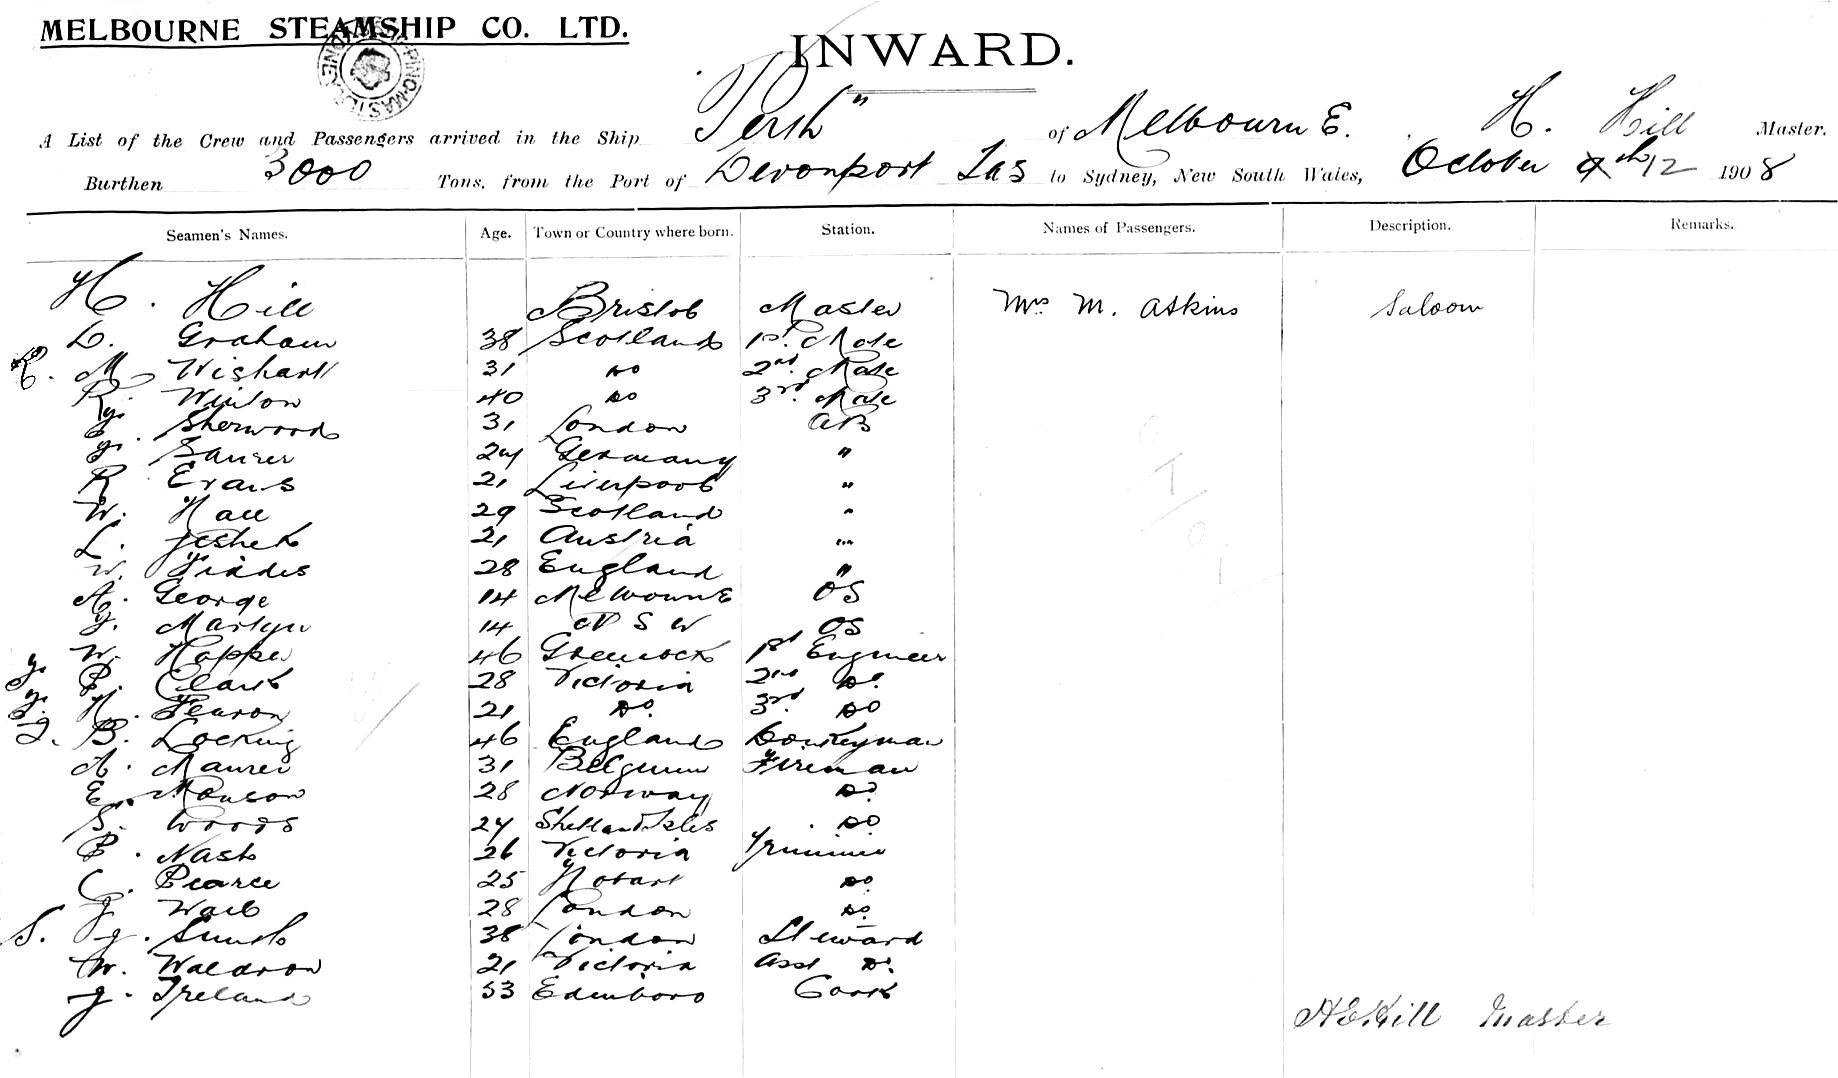 MELBOURNE STEAMSHIP CO. LTD.
INWARD.
A List of the Crew and Passengers arrived in the Ship "Perth" of MelbournE. H. Hill Master.
Burthen 3000 Tons, from the Port of Devonport Tas to Sydney, New South Wales, October 12 1908
Seamen's Names. Age. Town or Country where born. Station. Names of Passengers. Description. Remarks.
H. Hill Bristol Master Mrs M. Atkins Saloon
D. Graham 38 Scotland 1st. Mate
R. M Wishart 31 Do 2nd. Mate
R. Winton 40 Do 3rd. Mate
J. Sherwood 31 London AB
J. 24 Germany "
R Evans 21 Liverpool "
W. Hall 29 Scotland "
L. 21 Austria "
W. Fiddes 28 England "
A. George 14 MelbournE OS
J. Martyn 14 N S W OS
W. 46 Greenock 1st Engineer
J. P. Clark 28 Victoria 2nd Do.
J. H. Fearon 21 Do. 3rd Do
J. B. Locking 46 England Donkeyman
A. Maurer 31 Belgium Fireman
E. Monson 28 Norway Do
S. Woods 24 Shetland Isles Do
P. Nash 26 Victoria Trimmer
C. Pearce 25 Hobart Do
J Wail 28 London Do
S. J. 38 London Steward
W. Waldron 21 Victoria Asst Do.
J. Ireland 53 Edinboro Cook
H E Hill Master